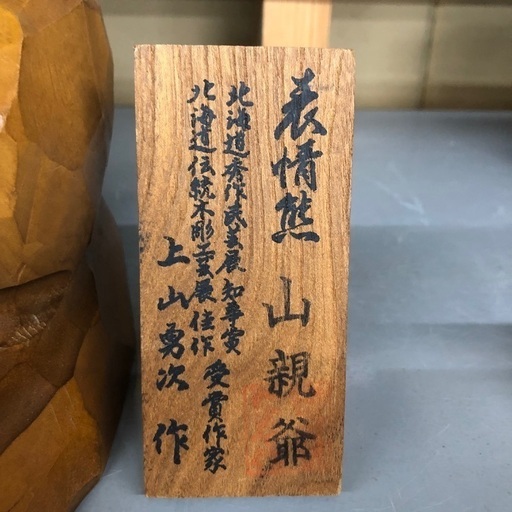 表情熊 山親爺
北海道秀作民芸展知事賞
北海道伝統木彫工芸展佳作 受賞作家
上山勇次 作